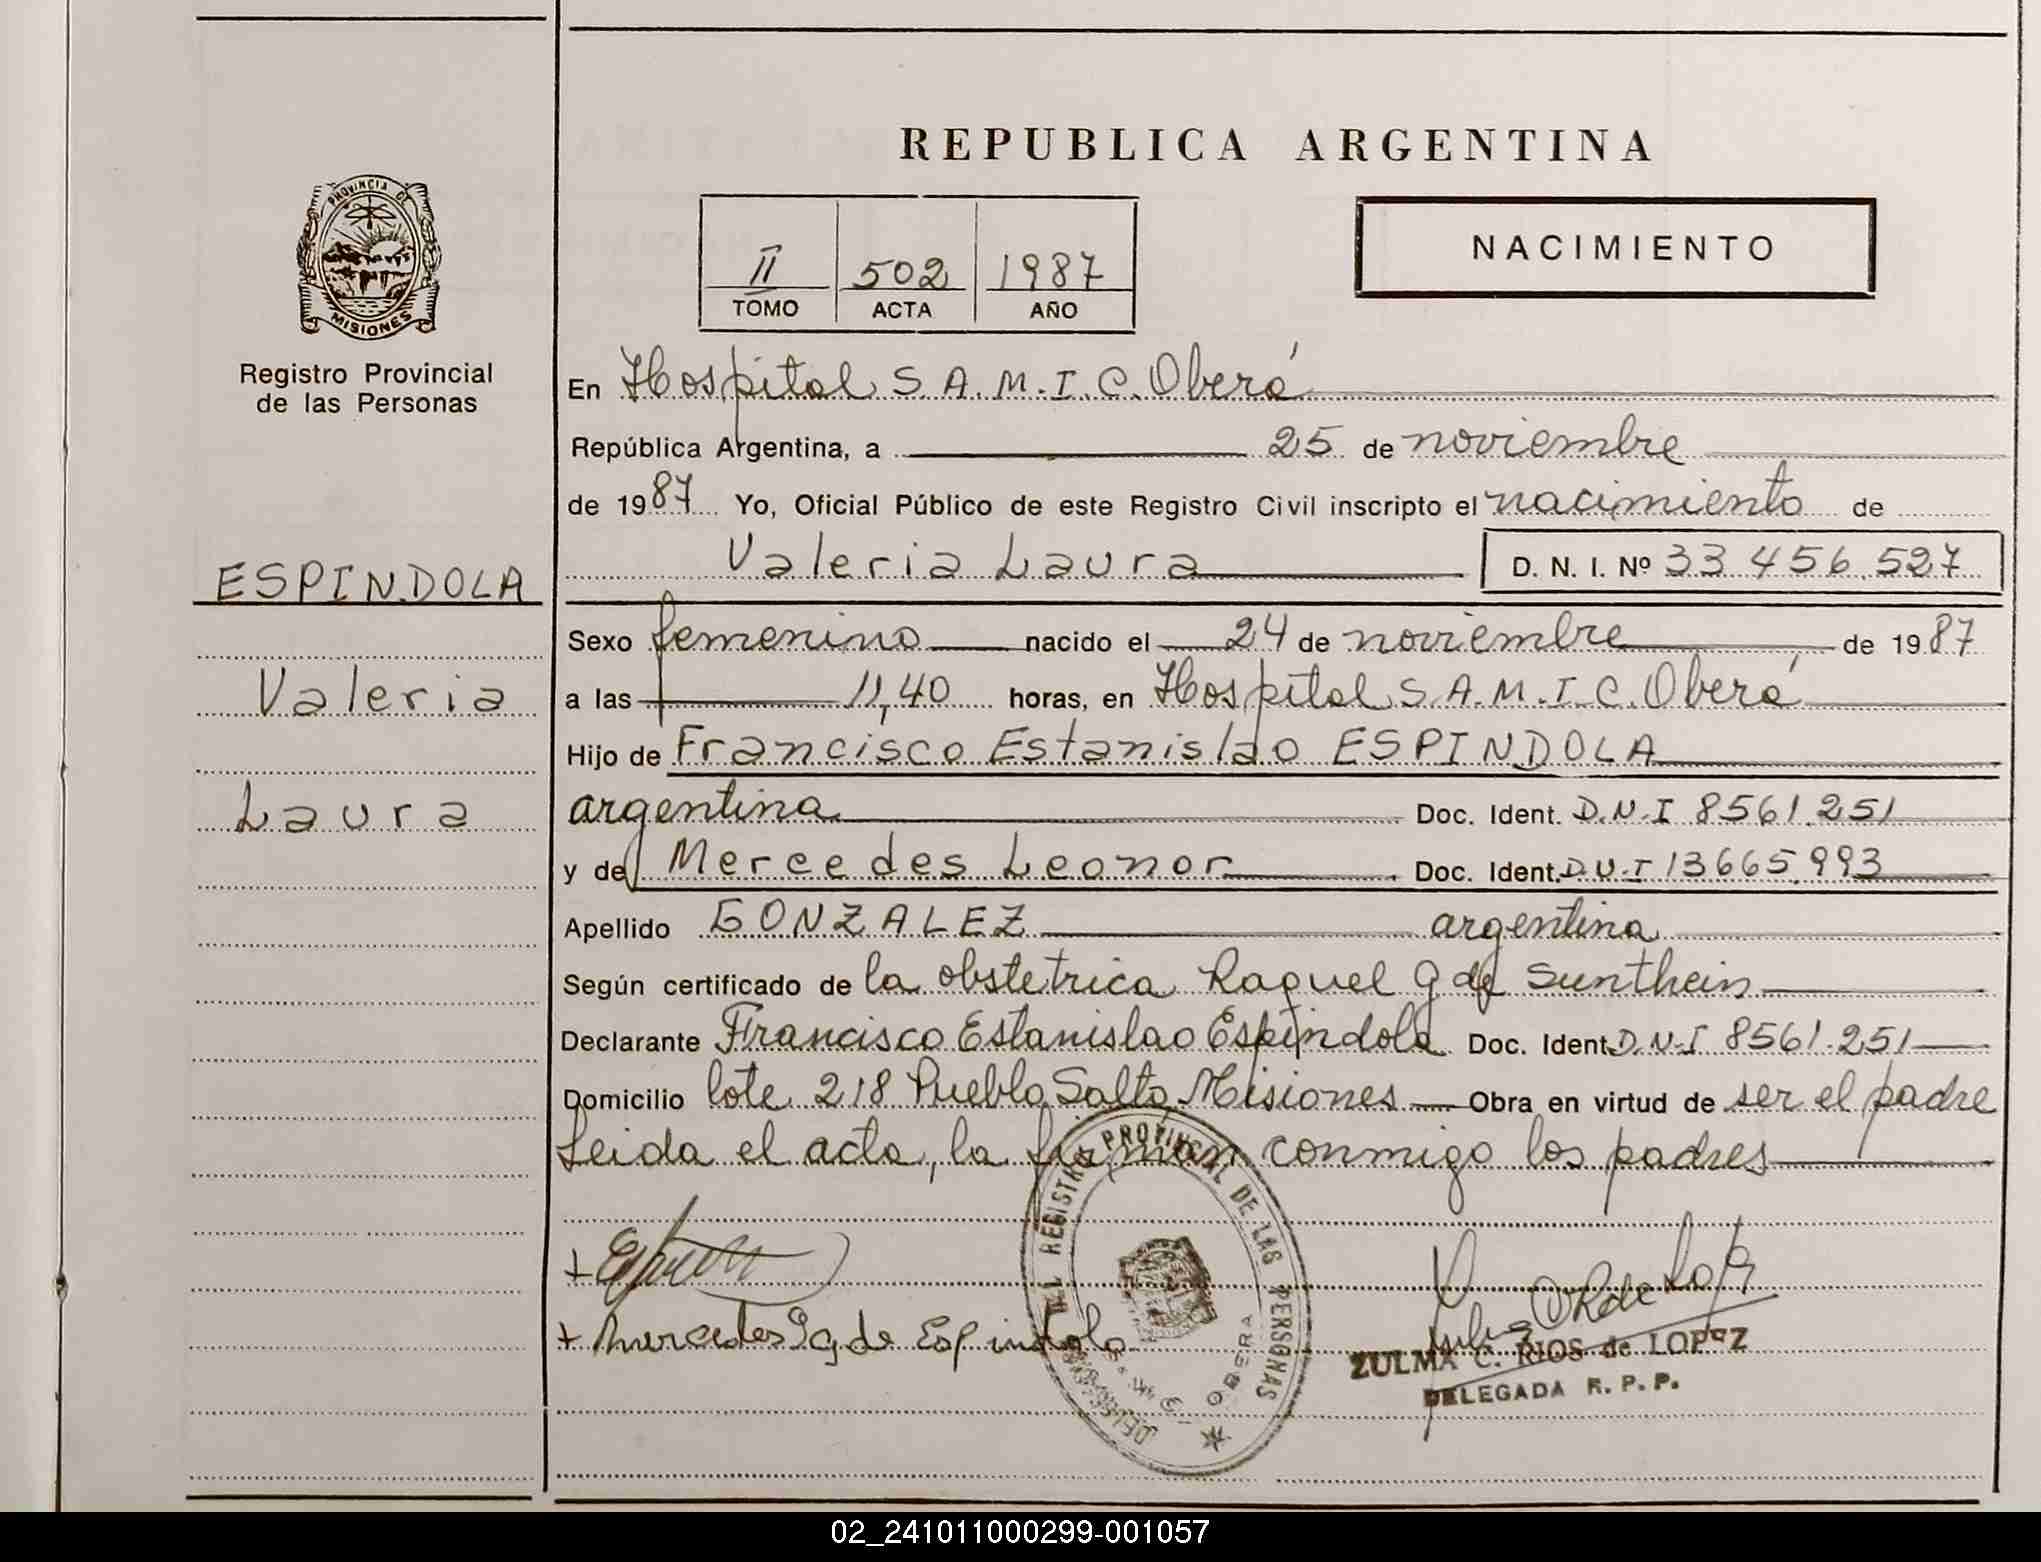 REPUBLICA ARGENTINA
PROVINCIA DE
MISIONES
Registro Provincial
de las Personas
II 502 1987
TOMO ACTA AÑO
NACIMIENTO
En Hospital S.A.M.I.C. Oberá
República Argentina, a 25 de noviembre
de 1987 Yo, Oficial Público de este Registro Civil inscripto el nacimiento de
Valeria Laura D. N. I. Nº 33.456.527
ESPINDOLA
Valeria
Laura
Sexo femenino nacido el 24 de noviembre de 1987
a las 11,40 horas, en Hospital S.A.M.I.C. Oberá
Hijo de Francisco Estanislao ESPINDOLA
argentina Doc. Ident. D.N.I 8561.251
y de Mercedes Leonor Doc. Ident. D.N.I 13665.993
Apellido GONZALEZ argentina
Según certificado de la obstetrica Raquel G de Sunthein
Declarante Francisco Estanislao Espindola Doc. Ident. D.N.I 8561.251
Domicilio lote 218 Pueblo Salto Misiones Obra en virtud de ser el padre
Leida el acta, la firman conmigo los padres
+
+ Mercedes G. de Espindola
REGISTRO PROVINCIAL DE LAS PERSONAS
OBERA
ZULMA C. RIOS de LOPEZ
DELEGADA R. P. P.
02_241011000299-001057